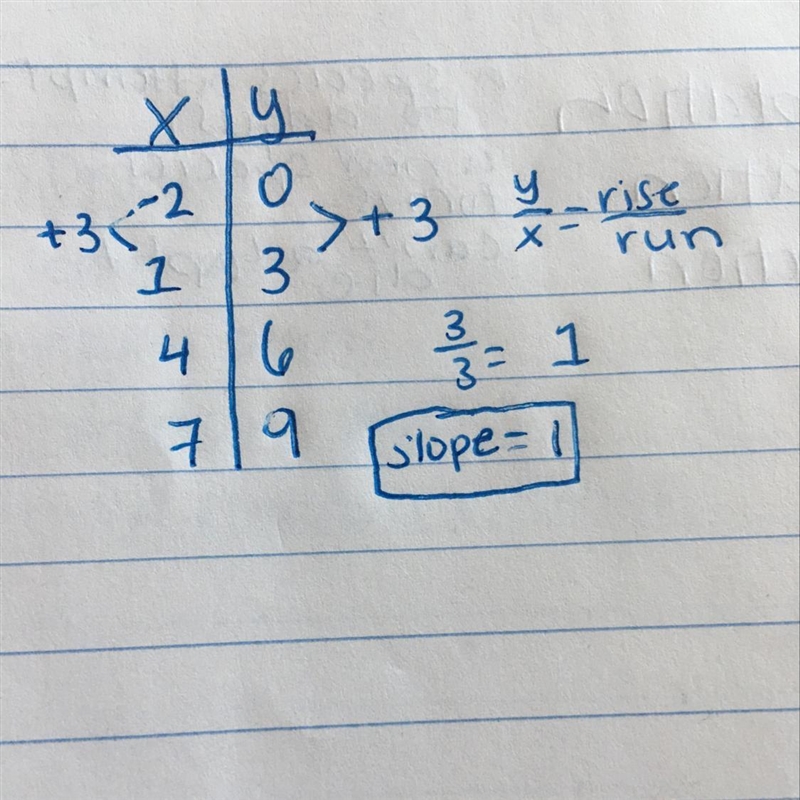 x y
-2 0
+3 +3 y/x = rise/run
1 3
4 6 3/3 = 1
7 9 slope = 1